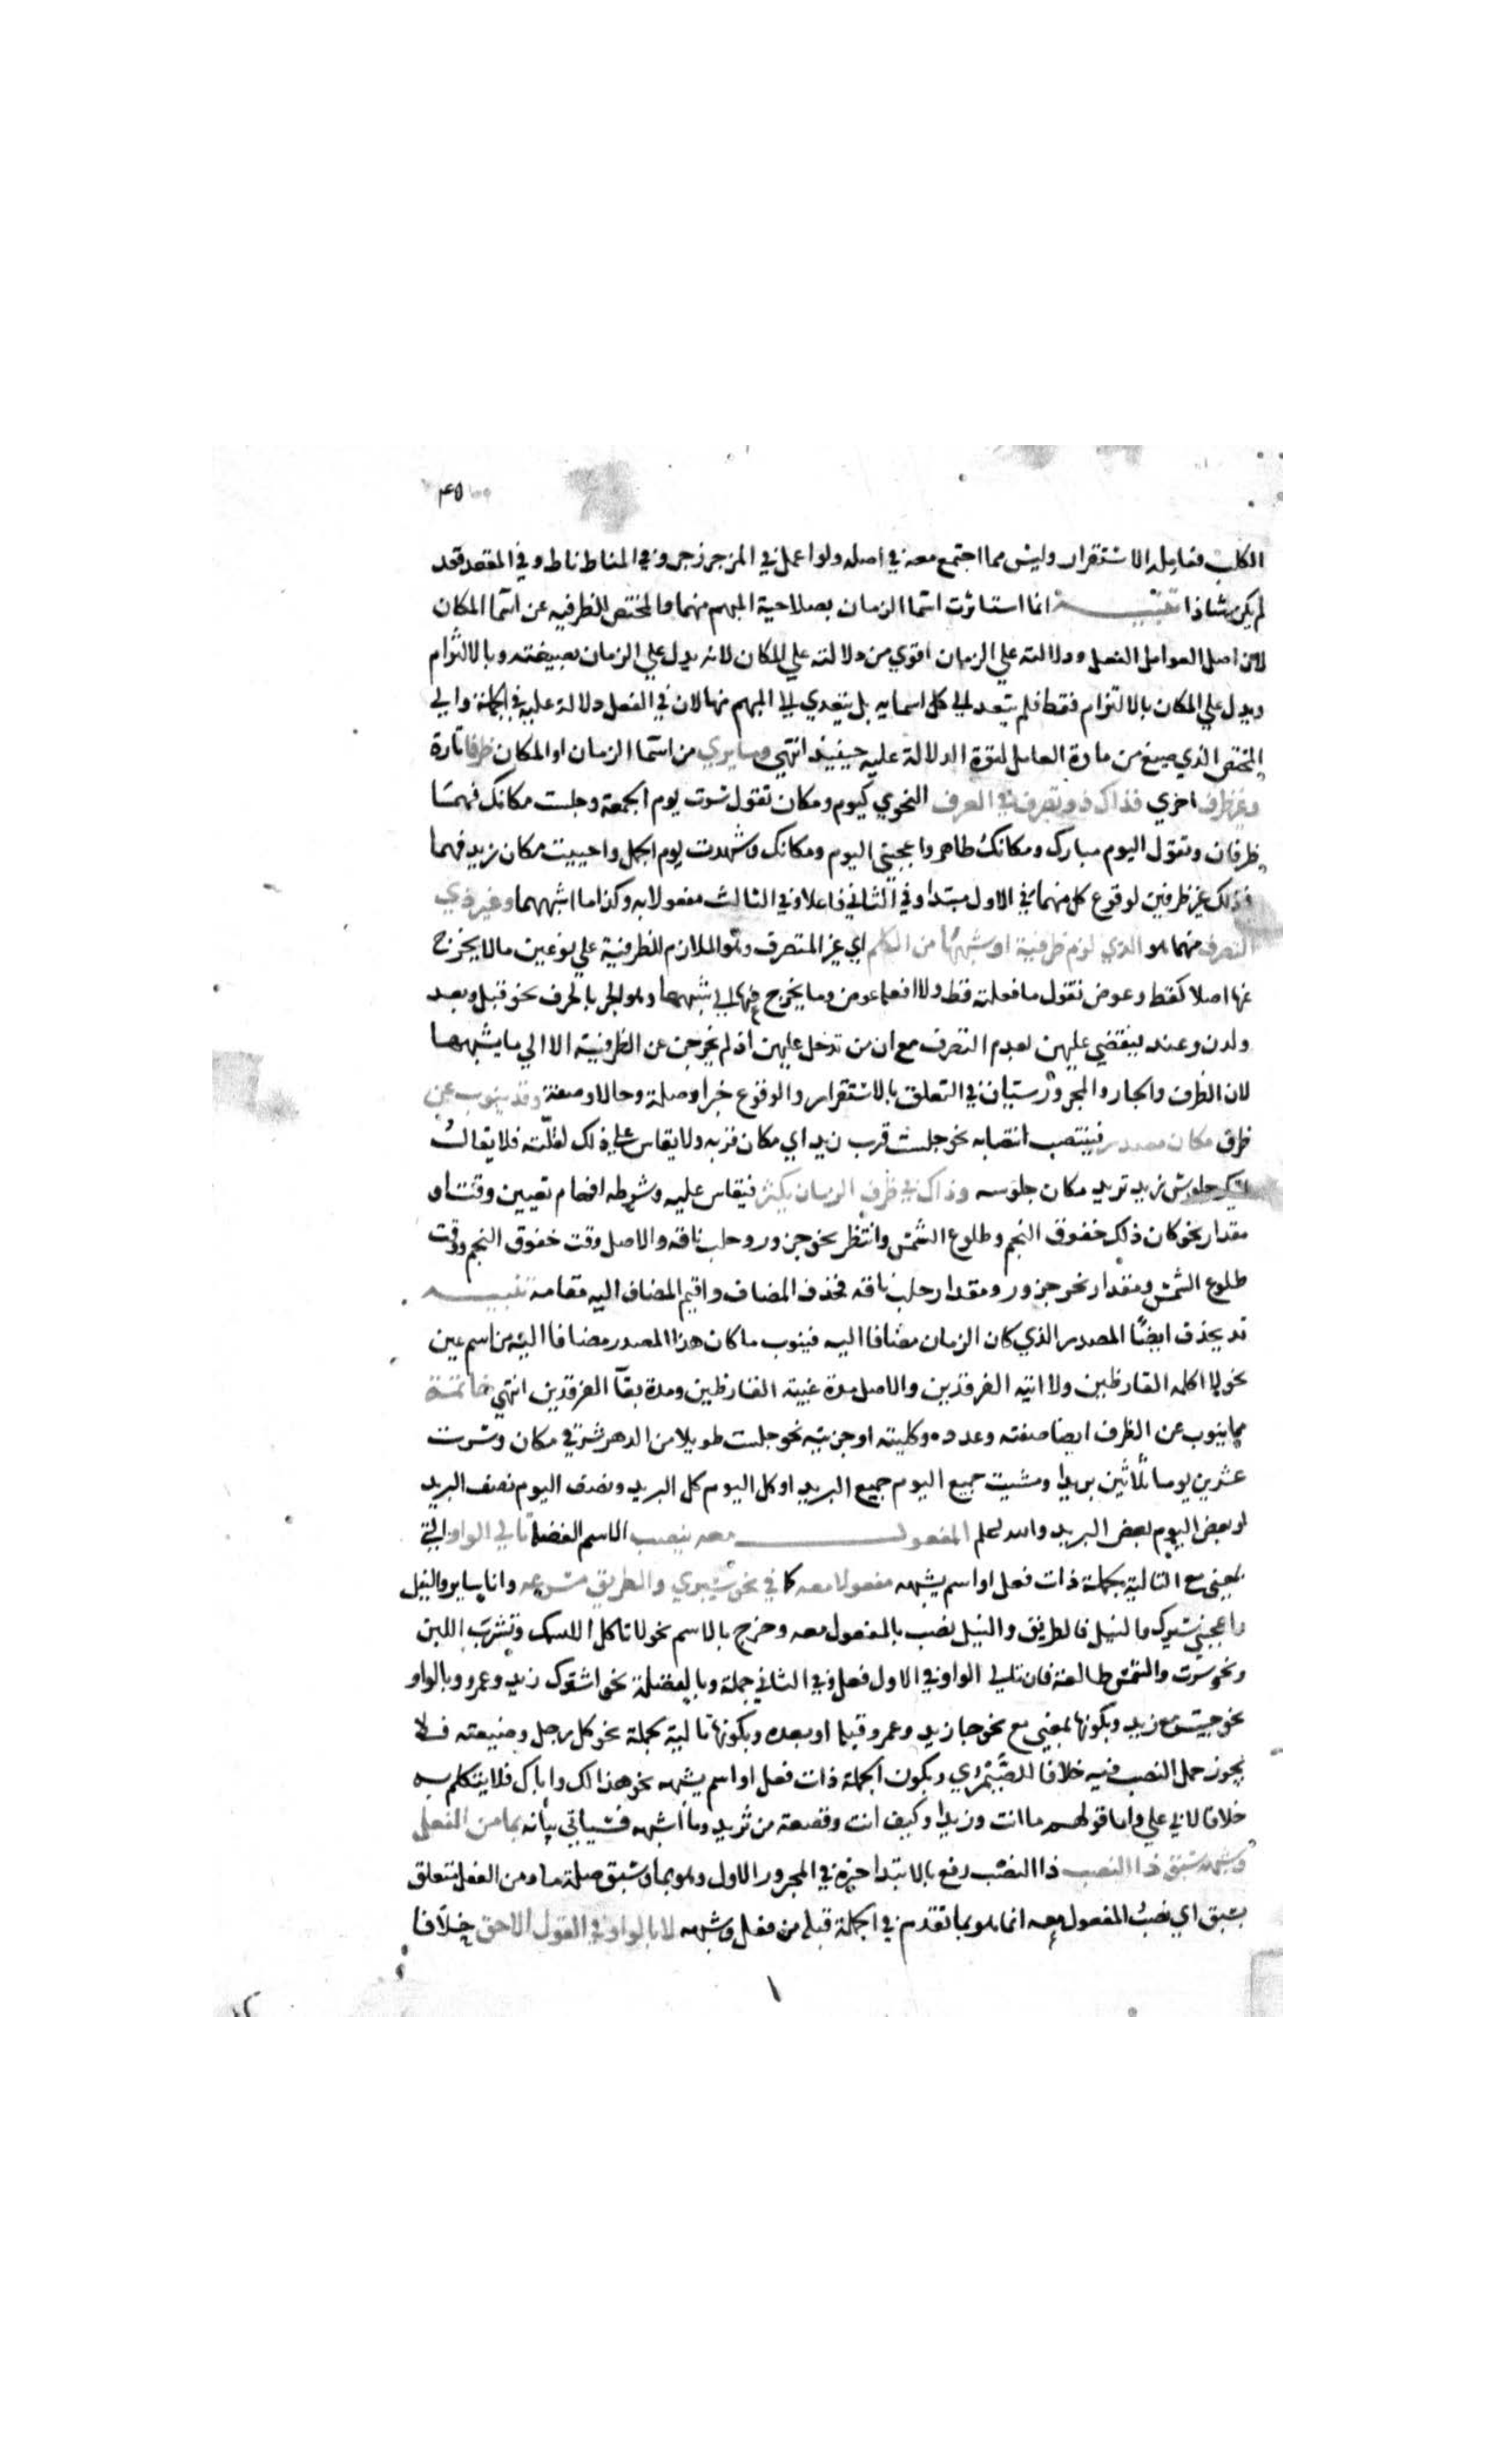 ٤٥
الكلب فعامله الاستقرار وليس مما اجتمع معه في اصله ولو اعمل في المزجر زجر وفي المناط ناط وفي المقعد قعد
لم يكن شاذا تنبيه انما استاثرت اسما الزمان بصلاحية المبهم منها والمختص للظرفيه عن اسما المكان
لان اصل العوامل الفعل ودلالته علي الزمان اقوي من دلالته علي المكان لانه يدل علي الزمان بصيغته وبالالتزام
ويدل علي المكان بالالتزام فقط فلم يتعد الي كل اسمايه بل يتعدي الي المبهم منها لان في الفعل دلالة عليه في الجملة والي
المختص الذي صيغ من مادة العامل لقوة الدلالة عليه حينيذ انتهي وما يري من اسما الزمان او المكان ظرفا تارة
وغير ظرف اخري فذاك ذو تصرف في العرف النحوي كيوم ومكان تقول سرت يوم الجمعة وجلست مكانك فهمسا
ظرفان وتقول اليوم مبارك ومكانك طاهر واعجبني اليوم ومكانك وشهدت يوم الجمل واحببت مكان زيد فهما
في ذلك غير ظرفين لوقوع كل منهما في الاول مبتدا وفي الثاني فاعلا وفي الثالث مفعولا به وكذا ما اشبههما وغير ذي
التصرف منهما هو الذي لزم ظرفية او شبهها من الكلم اي غير المتصرف وهو الملازم للظرفية علي نوعين ما لا يخرج
عنها اصلا كقط وعوض تقول ما فعلته قط ولا افعله عوض وما يخرج عنها الي شبهها وهو الجر بالحرف نحو قبل وبعد
ولدن وعند فيقضي عليهن بعدم التصرف مع ان من تدخل عليهن اذ لم يخرجن عن الظرفية الا الي ما يشبهها
لان الظرف والجار والمجرور سيان في التعلق بالاستقرار والوقوع خبرا وصلة وحالا وصفة وقد ينوب عن
ظرف مكان مصدر فينتصب انتصابه نحو جلست قرب زيد اي مكان قربه ولا يقاس علي ذلك لقلته فلا يقال
اتيك جلوس زيد تريد مكان جلوسه وذاك في ظرف الزمان يكثر فيقاس عليه وشرطه افهام تعيين وقت او
مقدار نحو كان ذلك خفوق النجم وطلوع الشمس وانتظر نحر جزور وحلب ناقه والاصل وقت خفوق النجم ووقت
طلوع الشمس ومقدار نحر جزور ومقدار حلب ناقه فحذف المضاف واقيم المضاف اليه مقامه تنبيه
قد يحذف ايضًا المصدر الذي كان الزمان مضافا اليه فينوب ما كان هذا المصدر مضافا اليه من اسم عين
نحو لا اكلمه القارظين ولا اتيه الفرقدين والاصل مدة غيبة القارظين ومدة بقآ الفرقدين انتهي خاتمة
مما ينوب عن الظرف ايضا صفته وعدده وكليته او جزئيته نحو جلست طويلا من الدهر شرقي مكان وسرت
عشرين يوما ثلاثين بريدا ومشيت جميع اليوم جميع البريد او كل اليوم كل البريد ونصف اليوم نصف البريد
او بعض اليوم بعض البريد والله اعلم المفعول معه ينصب الاسم الفضلة تالي الواو التي
بمعني مع التالية بجملة ذات فعل او اسم يشبهه مفعولا معه كما في نحو سيري والطريق مسرعه وانا ساير والنيل
واعجبني سيرك والنيل فالطريق والنيل نصب بالمفعول معه وخرج بالاسم نحو لا تاكل السمك وتشرب اللبن
ونحو سرت والشمس طالعة فان تالي الواو في الاول فعل وفي الثاني جملة وبالفضلة نحو اشترك زيد وعمرو وبالواو
نحو جيت مع زيد وبكونها بمعني مع نحو جا زيد وعمرو قبله او بعده وبكونها تالية بجملة نحو كل رجل وضيعته فلا
يجوز حمل النصب فيه خلافا للصيمري وبكون الجملة ذات فعل او اسم يشبهه نحو هذا لك واباك فلا يتكلم به
خلافا لابي علي واما قولهم ما انت وزيدا وكيف انت وقصعة من ثريد وما اشبهه فسياتي بيانه بما من الفعل
وشبهه سبق ذا النصب ذا النصب رفع بالابتدا خبره في المجرور الاول وهو بما وسبق صلة ما ومن الفعل متعلق
بسبق اي نصب المفعول معه انما هو بما تقدم في الجملة قبله من فعل وشبهه لا بالواو في القول الاحق خلافا